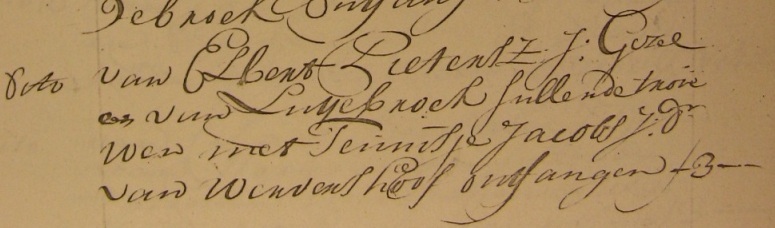 debroek ontfang
dito van Elbert Pietersz j: Gezel
en van Lutjebroek sullende trou
wen met Teuntje Jacobs j: dr
van Wervershoof ontfangen f3—